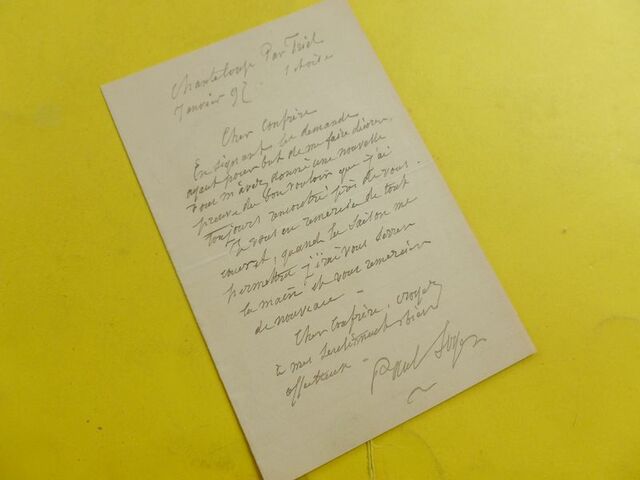 Chanteloup Par Triel
Janvier 97. 1 Seine
Cher Confrère
En signant la demande
ayant pour but de me faire décorer,
vous m'avez donné une nouvelle
preuve du bon vouloir que j'ai
toujours rencontré près de vous.
Je vous en remercie de tout
coeur et, quand la saison me
permettra j'irai vous serrer
la main et vous remercier
de nouveau -
Cher Confrère, croyez
à mes sentiments bien
affectueux -
Paul